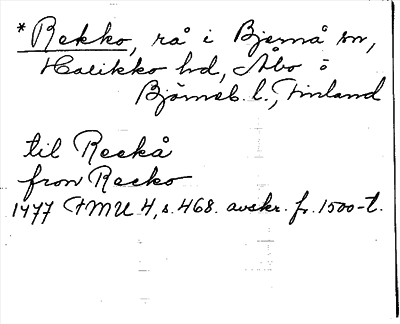 * Rekko, rå i Bjernå sn,
Halikko hd, Åbo o
Björneb. l., Finland
til Reckå
fron Recko
1477 FMU 4, s. 468. avskr. fr. 1500-t.